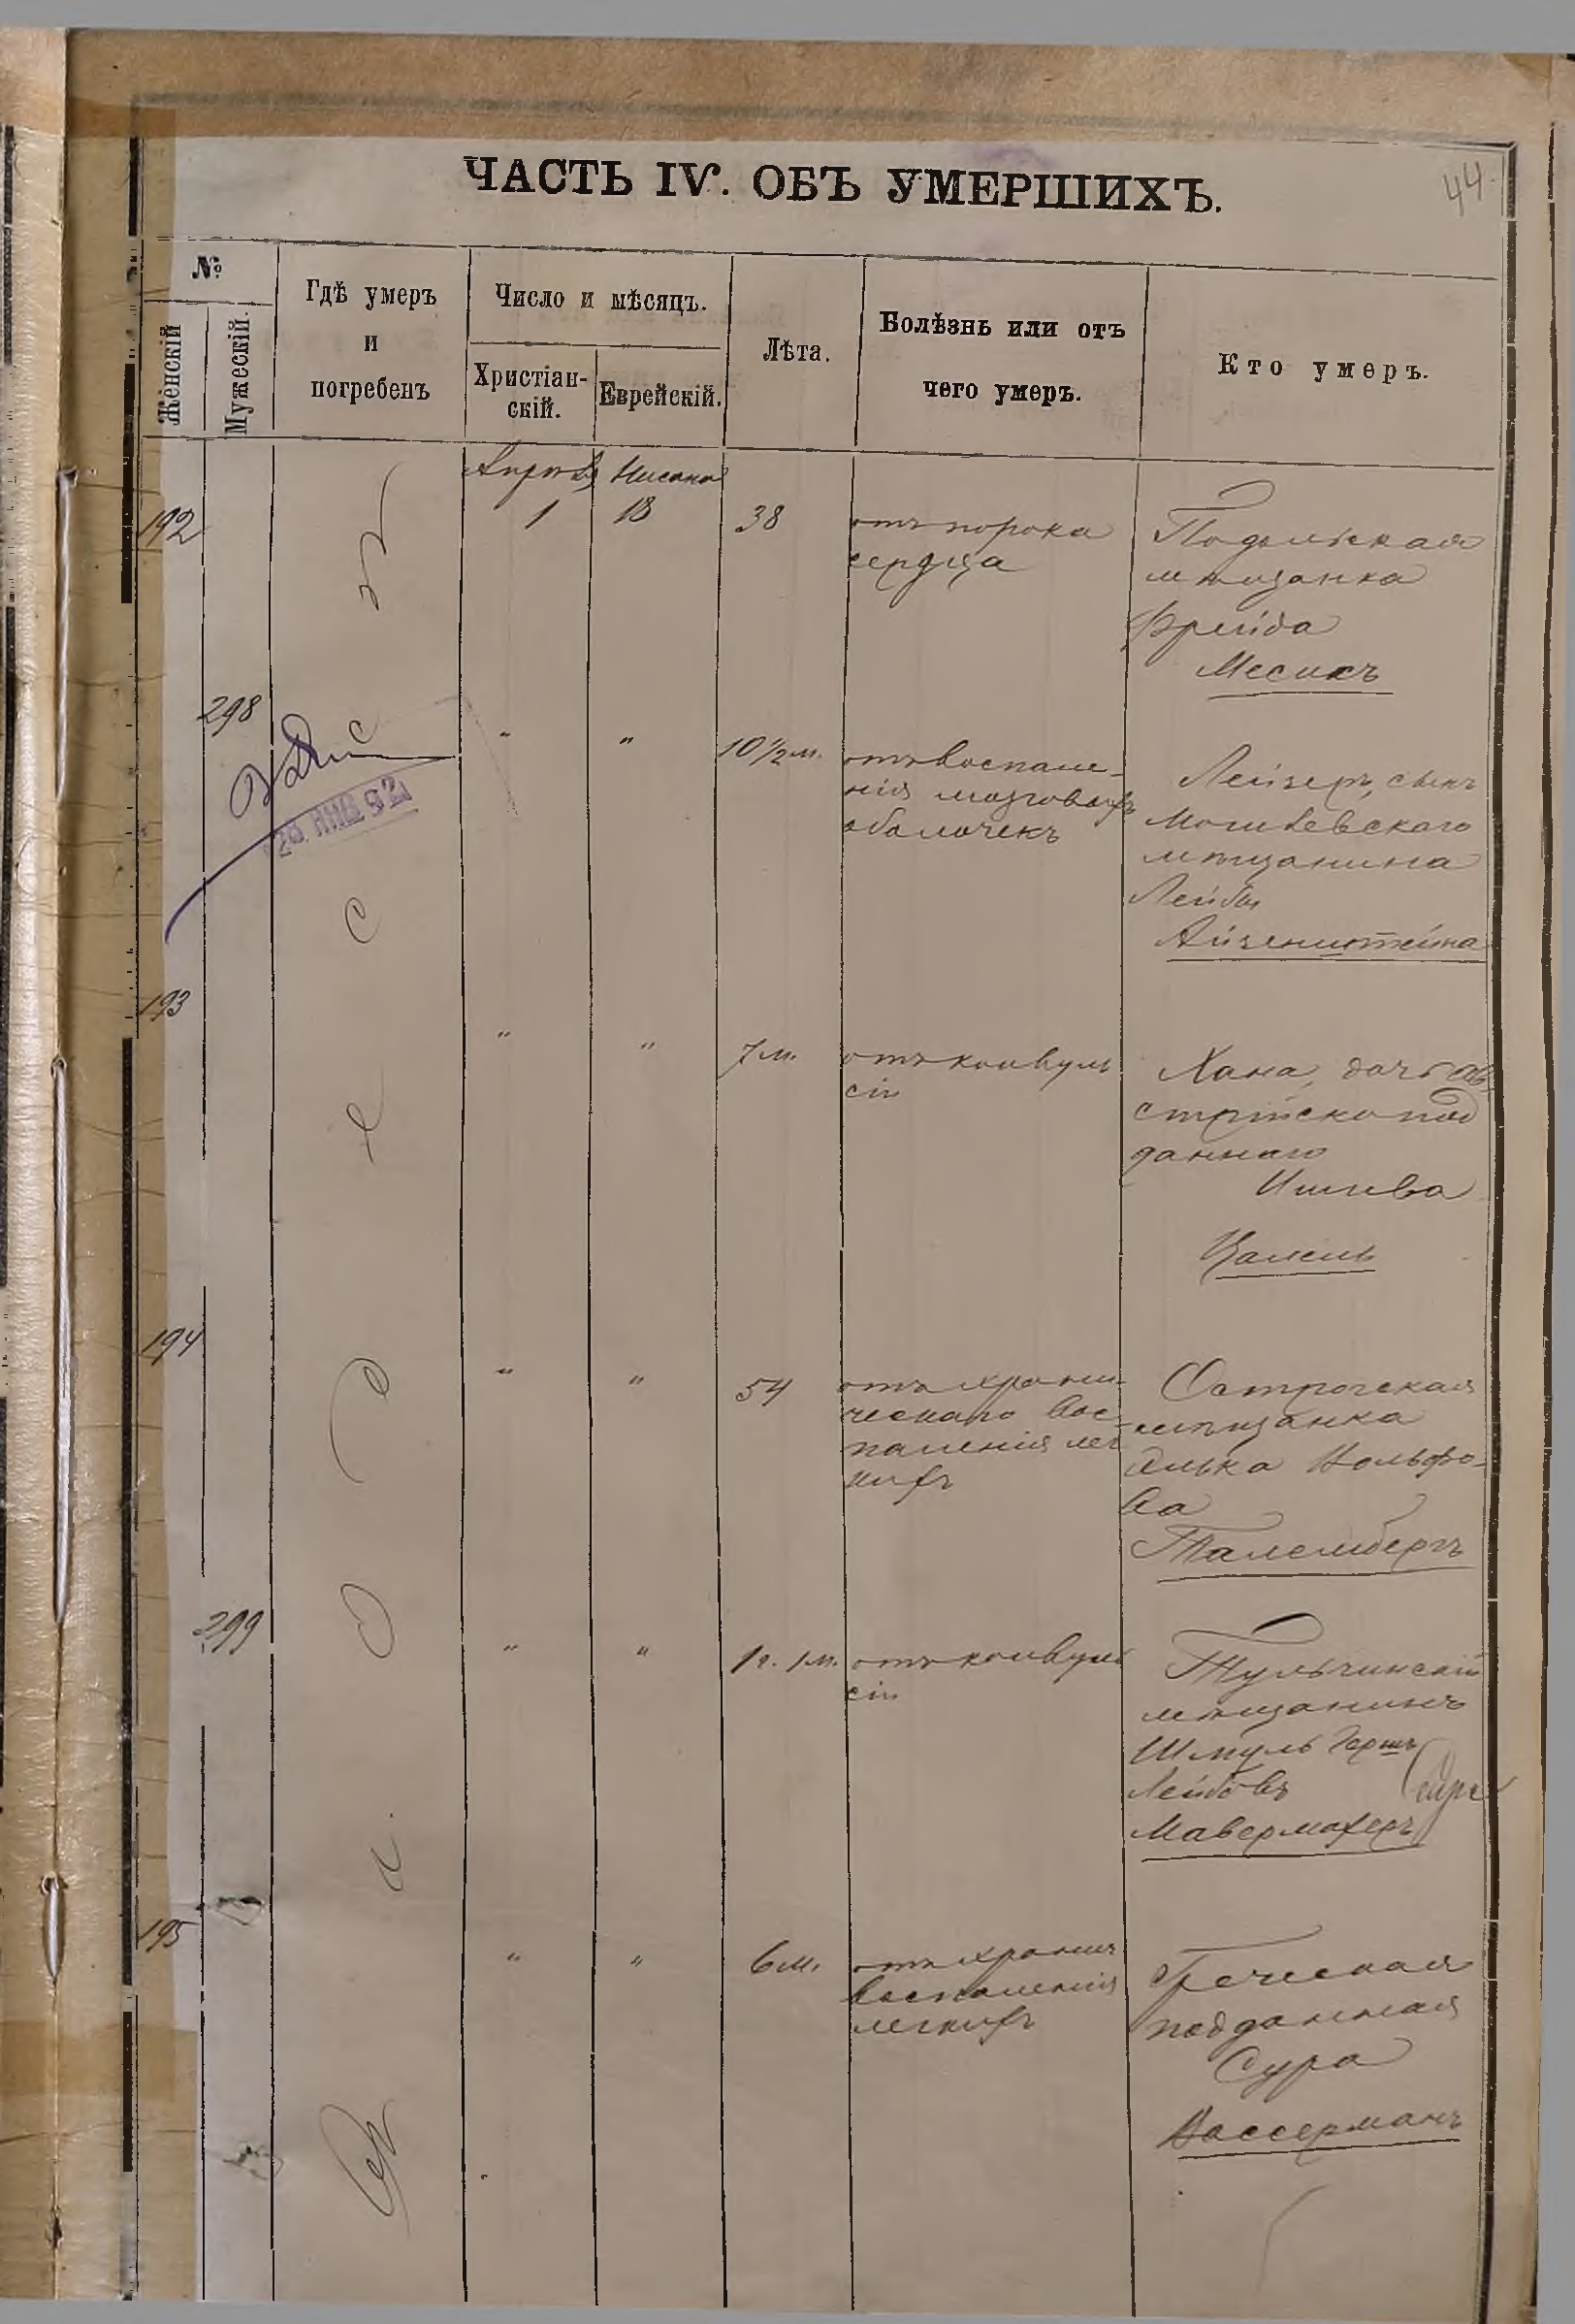 44.
ЧАСТЬ IV. ОБЪ УМЕРШИХЪ.
№
Женскій
Мужескій.
Гдѣ умеръ
и
погребенъ
Число и мѣсяцъ.
Христіан-
скій.
Еврейскій.
Лѣта.
Болѣзнь или отъ
чего умеръ.
Кто умеръ.
Апрѣль Нисана
192 1 18 38
отъ порока
сердца
Подольская
мѣщанка
Фрейда
Месикъ
298 " " 10 1/2 м.
отъ воспале-
нія мозговыхъ
оболочекъ
Лейзеръ, сынъ
Могилевскаго
мѣщанина
Лейбы
Айзенштейна
193 " " 7 м.
отъ конвуль
сіи
Хана, дочь ав
стрійско под
даннаго
194 " " 54
отъ хрони-
ческаго вос-
паленія лег
кихъ
Острогская
мѣщанка
Вольфо-
ва
Талембергъ
299 " " 1 г. 1 м.
отъ конвуль
сіи
Тульчинскій
мѣщанинъ
Шмуль Гершъ
Лейбовъ
Мавермахеръ
195 " " 6 м.
отъ хронич
воспаленія
легкихъ
Греческая
подданная
Сура
Вассерманъ
Одесса